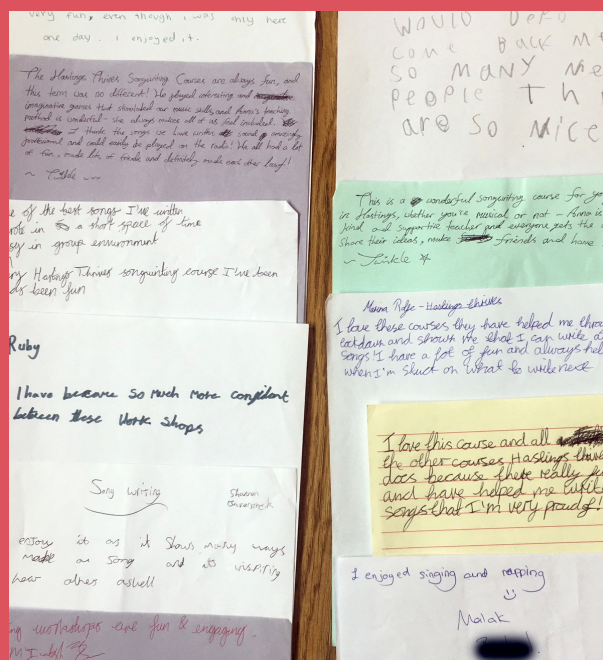 very fun, even though i was only here
one day. i enjoyed it.
The Hastings Thrives Songwriting Courses are always fun, and
this term was no different! We played interesting and
imaginative games that stimulated our music skills, and Anna's teaching
method is wonderful - she always makes all of us feel included.
I think the songs we have written sound amazingly
professional and could easily be played on the radio! We all had a lot
of fun, made lots of friends and definitely made each other laugh!
~ Twinkle ~
e of the best songs I've written
rote in a short space of time
sy in group environment
ny Hastings Thrives songwriting course I've been
as been fun
Ruby
I have became so much more confident
between these Work Shops
Song writing
Sharon
enjoy it as it shows many ways
make a song and its inspiring
hear others aswell
ng workshops are fun & engaging.
WOULD DEFO
COME BACK M
SO MANY NE
PEOPLE TH
are SO Nice
This is a wonderful songwriting course for yo
in Hastings, whether you're musical or not - Anna is
kind and supportive teacher and everyone gets the
Share their ideas, make friends and have
~ Twinkle
- Hastings thrives
I love these courses they have helped me throu
lockdown and shown me that I can write a
songs I have a lot of fun and always hel
when I'm stuck on what to write next
I love this course and all
the other courses Hastings thrive
does because there really fu
and have helped me write
songs that I'm very proud of!
I enjoyed singing and rapping
Malak